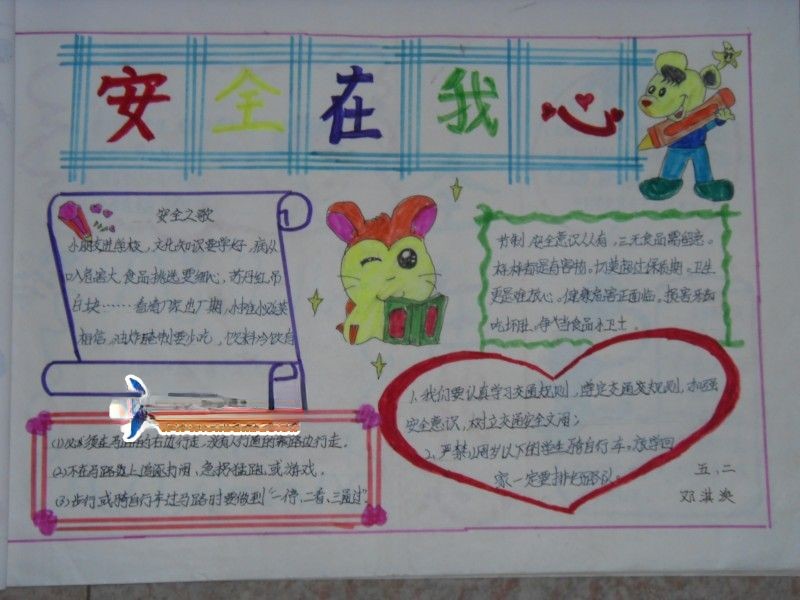 安全在我心
安全之歌
小朋友进学校，文化知识要学好，病从
口入危害大，食品挑选要细心，苏丹红吊
白块……看清厂家出厂期，小
相信，油炸腌制要少吃，饮料冷饮自
节制，安全意识人人有，三无食品需留意。
样样都是有害物。切莫超过保质期。卫生
更是难放心。健康危害正面临。损害牙齿
吃坏肚。争当食品小卫士。
1、我们要认真学习交通规则，遵定交通交规则，加强
安全意识，树立交通安全文明；
2、严禁12周岁以下的学生骑自行车。放学回
家一定要排好路队。
五、二
邓淇
(1)必须在马路的右边行走，没有人行道的靠路边行走。
(2)不在马路上追逐打闹，急拐猛跑，或游戏。
(3)步行或骑自行车过马路时要做到“一停、二看、三通过”